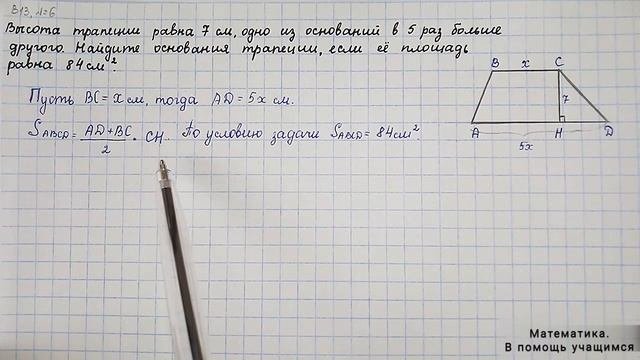 В13, №6
Высота трапеции равна 7 см, одно из оснований в 5 раз больше
другого. Найдите основания трапеции, если её площадь
равна 84 см².
Пусть BC = x см, тогда AD = 5x см.
S_ABCD = (AD + BC)/2 · CH. По условию задачи S_ABCD = 84 см².
B x C
7
A H D
5x
Математика.
В помощь учащимся